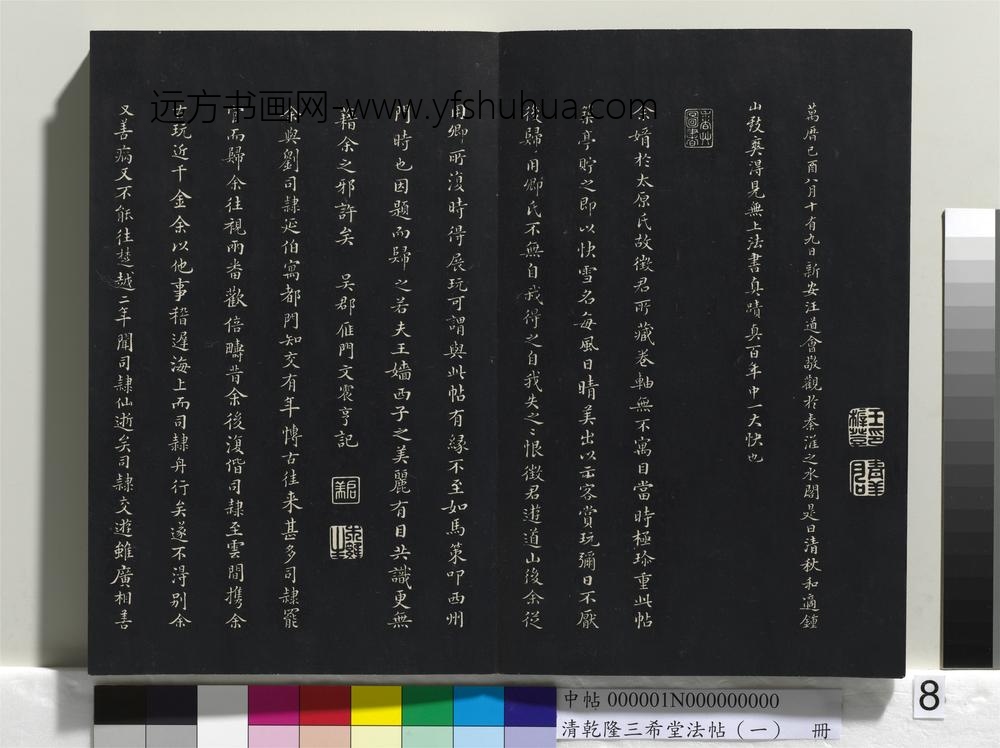 萬曆己酉八月十有九日新安汪道會敬觀於秦淮之水閣是日清秋和適鍾
山發爽得見無上法書真蹟真百年中一大快也
余婿於太原氏故徵君所藏卷軸無不寓目當時極珍重此帖
築亭貯之即以快雪名每風日晴美出以示客賞玩彌日不厭
後歸用卿氏不無自我得之自我失之之恨徵君遊道山後余從
用卿所復時得展玩可謂與此帖有緣不至如馬策叩西州
門時也因題而歸之若夫王嬙西子之美麗有目共識更無
藉余之邪許矣 吳郡雁門文震亨記
余與劉司隸延伯寓都門知交有年博古往来甚多司隸罷
官而歸余往視兩番歡倍疇昔余後復偕司隸至雲間携余
古玩近千金余以他事稽遲海上而司隸舟行矣遂不得別余
又善病又不能往楚越二年聞司隸仙逝矣司隸交遊雖廣相善
远方书画网-www.yfshuhua.com
8
中帖 000001N000000000
清乾隆三希堂法帖（一） 冊